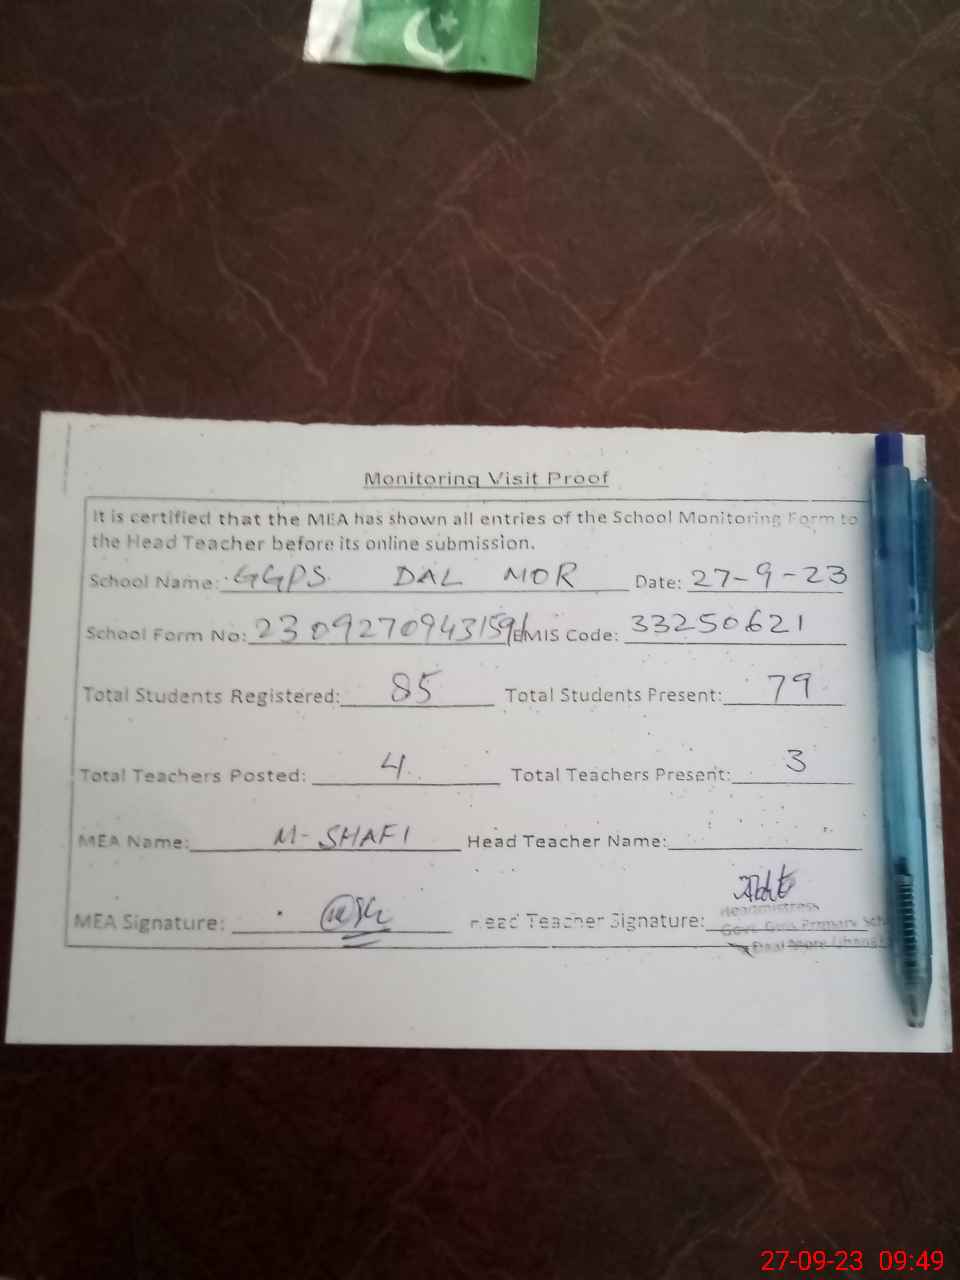 Monitoring Visit Proof
It is certified that the MEA has shown all entries of the School Monitoring Form to
the Head Teacher before its online submission.
School Name: GGPS DAL MOR Date: 27-9-23
School Form No: EMIS Code: 33250621
Total Students Registered: 85 Total Students Present: 79
Total Teachers Posted: 4 Total Teachers Present: 3
MEA Name: M-SHAFI Head Teacher Name:
MEA Signature: Head Teacher Signature:
Headmistress
Govt. Girls Primary Sch
27-09-23 09:49